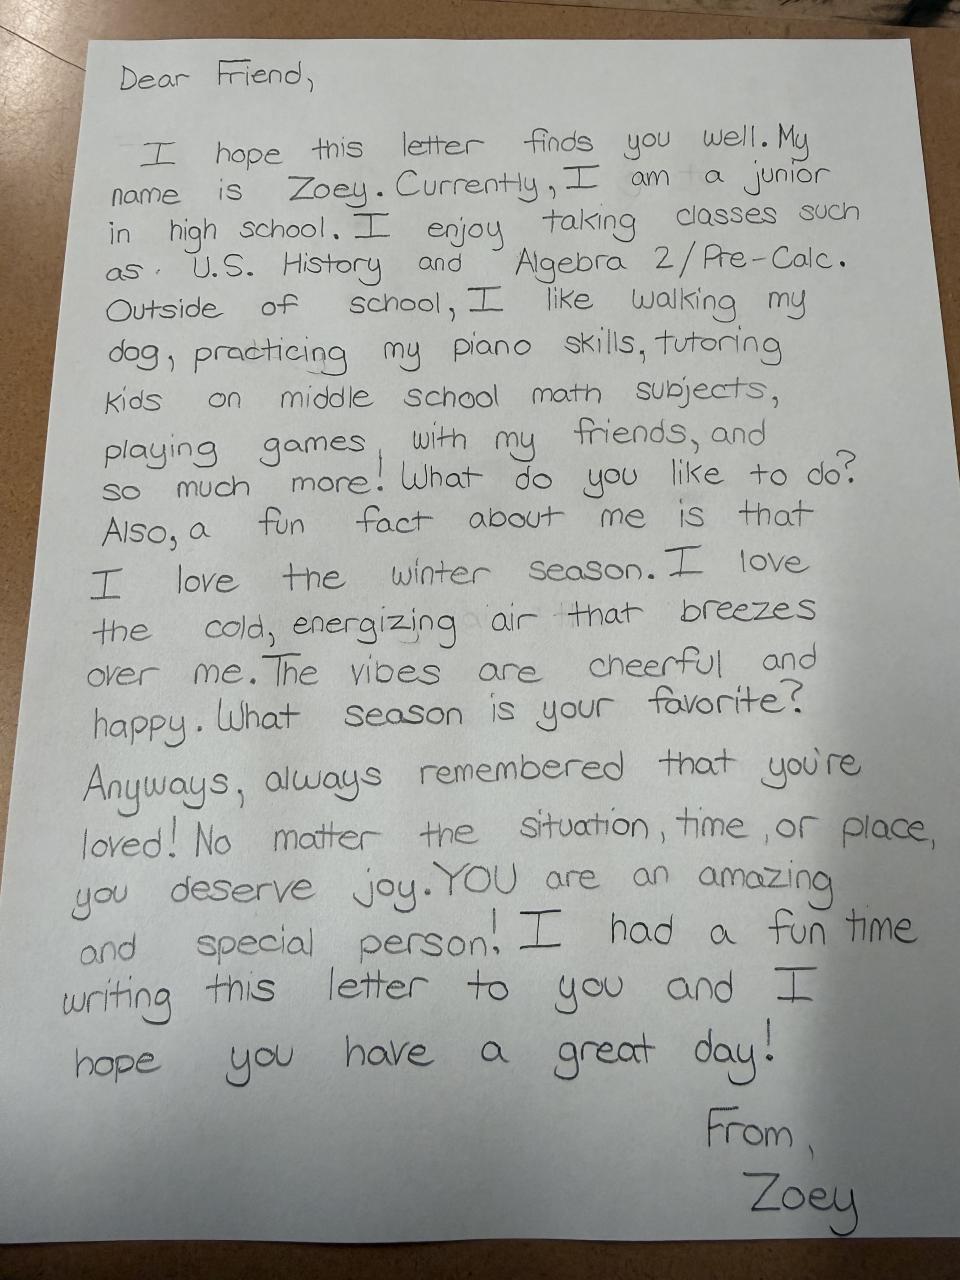 Dear Friend,
I hope this letter finds you well. My
name is Zoey. Currently, I am a junior
in high school. I enjoy taking classes such
as U.S. History and Algebra 2/Pre-Calc.
Outside of school, I like walking my
dog, practicing my piano skills, tutoring
kids on middle school math subjects,
playing games, with my friends, and
so much more! What do you like to do?
Also, a fun fact about me is that
I love the winter season. I love
the cold, energizing air that breezes
over me. The vibes are cheerful and
happy. What season is your favorite?
Anyways, always remembered that you're
loved! No matter the situation, time, or place,
you deserve joy. YOU are an amazing
and special person! I had a fun time
writing this letter to you and I
hope you have a great day!
From,
Zoey